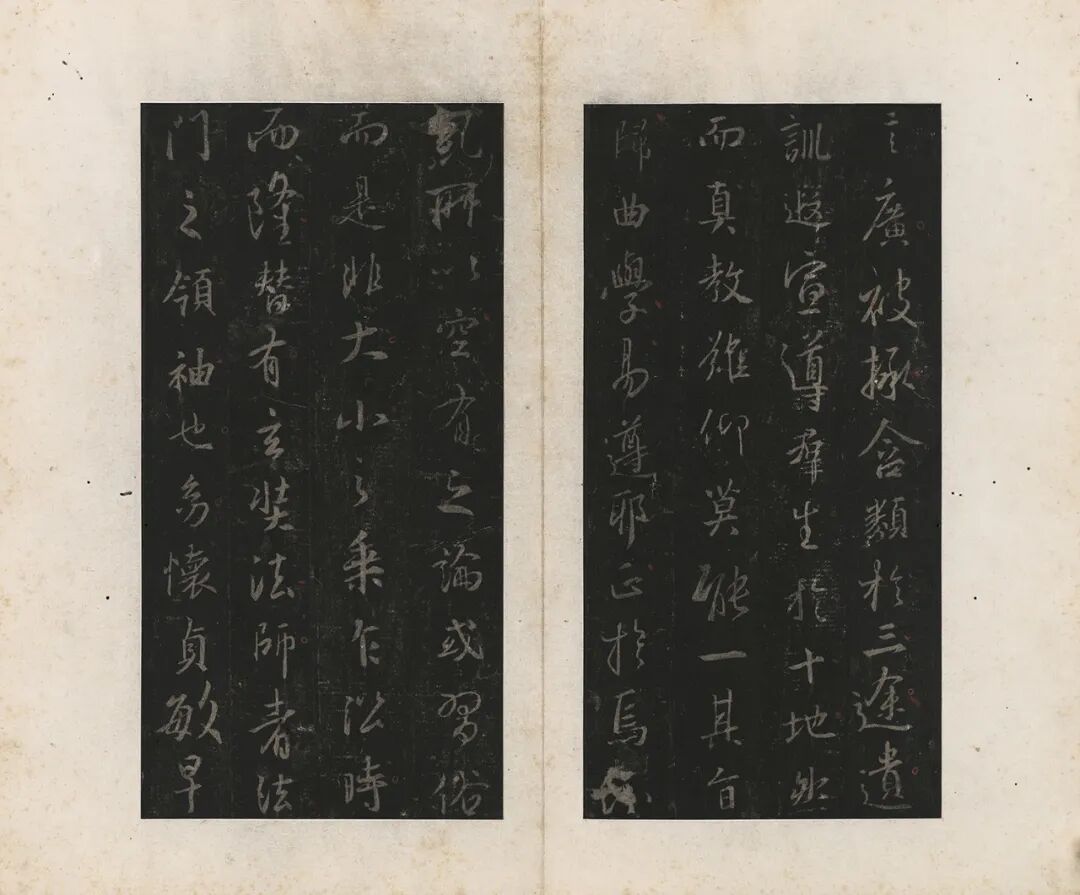 言廣被拯含類於三途遺
訓遐宣導羣生於十地然
而真教難仰莫能一其旨
歸曲學易遵耶正於焉紛
糺所以空有之論或習俗
而是非大小之乘乍沿時
而隆替有玄奘法師者法
門之領袖也幼懷貞敏早